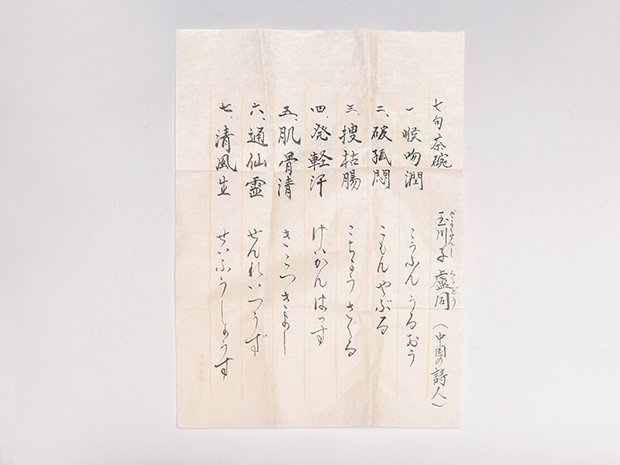 七句茶碗 玉川子 盧同 (中国の詩人)
一、喉吻潤 こうふん うるおう
二、破孤悶 こもん やぶる
三、捜枯腸 こちょう さぐる
四、発軽汗 けいかん はっす
五、肌骨清 きこつ きよし
六、通仙霊 せんれいつうず
七、清風生 せいふうしょうず